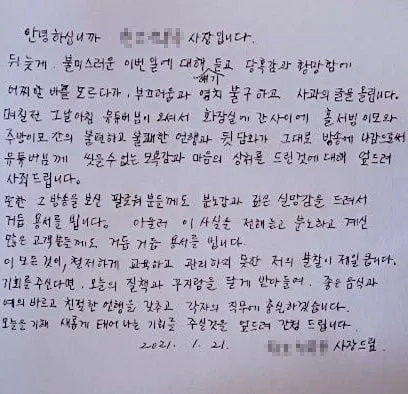 안녕하십니까 사장입니다.
뒤늦게. 불미스러운 이번일에 대해 듣고 당혹감과 황망함에
얘기
어찌할 바를 모르다가, 부끄러움과 염치 불구하고 사과의 글을 드립니다.
며칠전 그날아침 유튜버님이 오셔서 화장실에 간 사이에 홀 서빙 이모와
주방이모 간의 불편하고 불쾌한 언행과 뒷담화가 그대로 방송에 나감으로써
유튜버님께 씻을수 없는 모욕감과 마음의 상처를 드린것에 대해 엎드려
사죄드립니다.
또한 그 방송을 보신 팔로워분들께도 분노감과 깊은 실망감을 드려서
거듭 용서를 빕니다. 아울러 이 사실을 전해 듣고 분노하고 계신
많은 고객분들께도 거듭 거듭 용서를 빕니다.
이 모든것이, 철저하게 교육하고 관리하지 못한 저의 불찰이 제일 큽니다.
기회를 주신다면. 오늘의 질책과 꾸지람을 달게 받아들여. 좋은 음식과
예의 바르고 친절한 언행을 갖추고 각자의 직무에 충실하겠습니다.
오늘을 기해 새롭게 태어나는 기회를 주실것을 엎드려 간청 드립니다.
2021. 1. 21. 사장드림.